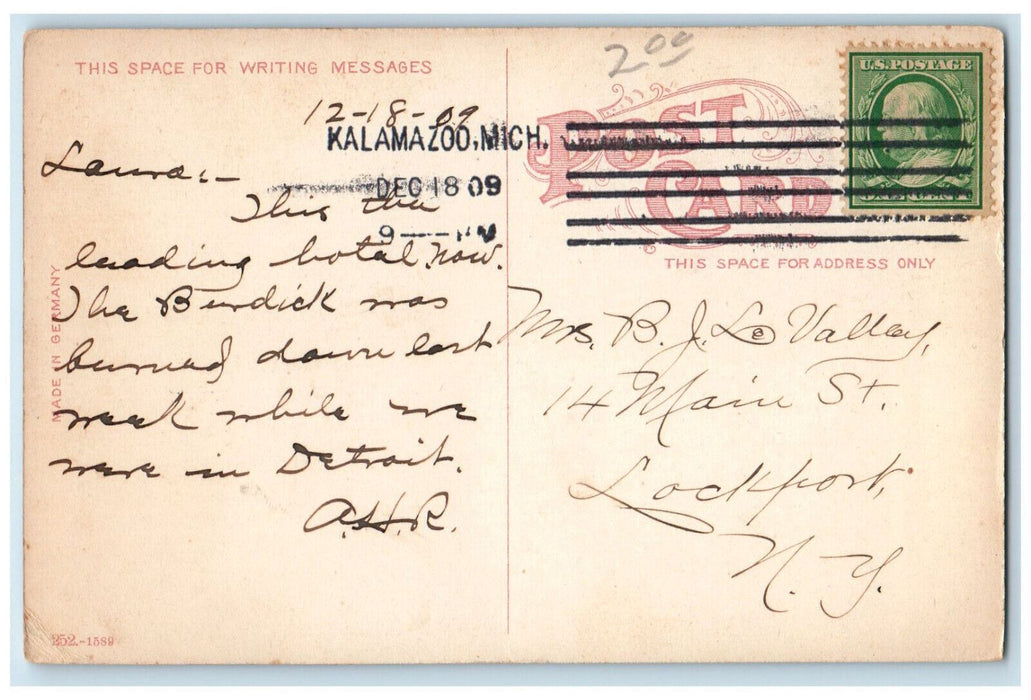 THIS SPACE FOR WRITING MESSAGES
2 00
U.S. POSTAGE
POST
CARD
12-18-09
KALAMAZOO, MICH.
DEC 18 09
9
Laura:-
This the
leading hotel now.
The Burdick was
burned down last
week while we
were in Detroit.
A.H.R.
MADE IN GERMANY
252.-1589
THIS SPACE FOR ADDRESS ONLY
Mrs. B. J. Le Valley,
14 Main St.
Lockport,
N. Y.